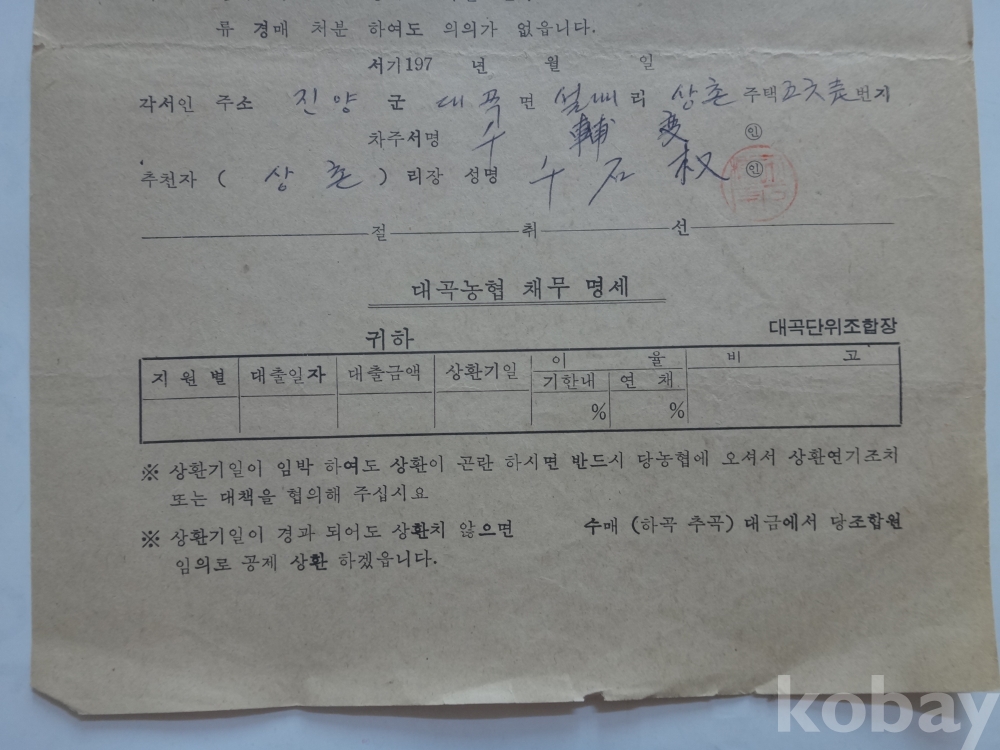 류 경매 처분 하여도 의의가 없읍니다.
서기197 년 월 일
각서인 주소 진양 군 대곡 면 설매 리 상촌 주택 번지
차주서명 輔 ㊞
추천자 ( 상촌 ) 리장 성명 石 权 ㊞
절 취 선
대곡농협 채무 명세
귀하 대곡단위조합장
지원별 대출일자 대출금액 상환기일 이 율 비 고
기한내 연 채
% %
※ 상환기일이 임박 하여도 상환이 곤란 하시면 반드시 당농협에 오셔서 상환연기조치
또는 대책을 협의해 주십시요
※ 상환기일이 경과 되어도 상환치 않으면 수매 (하곡 추곡) 대금에서 당조합원
임의로 공제 상환 하겠읍니다.
kobay